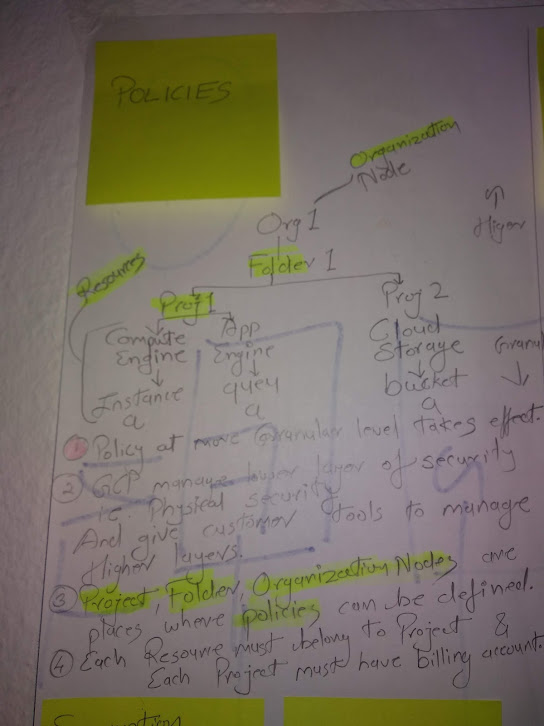 POLICIES
Organization
Node
Org 1
Higher
Folder 1
Resources
Proj 1
Proj 2
Compute
Engine
App
Engine
Cloud
Storage
Granul
Instance
a
queu
a
bucket
a
① Policy at more Granular level takes effect.
② GCP manage lower layer of security
i.e. Physical security
And give customer tools to manage
Higher layers.
③ Project, Folder, Organization Nodes are
places where policies can be defined.
④ Each Resource must belong to Project &
Each Project must have billing account.